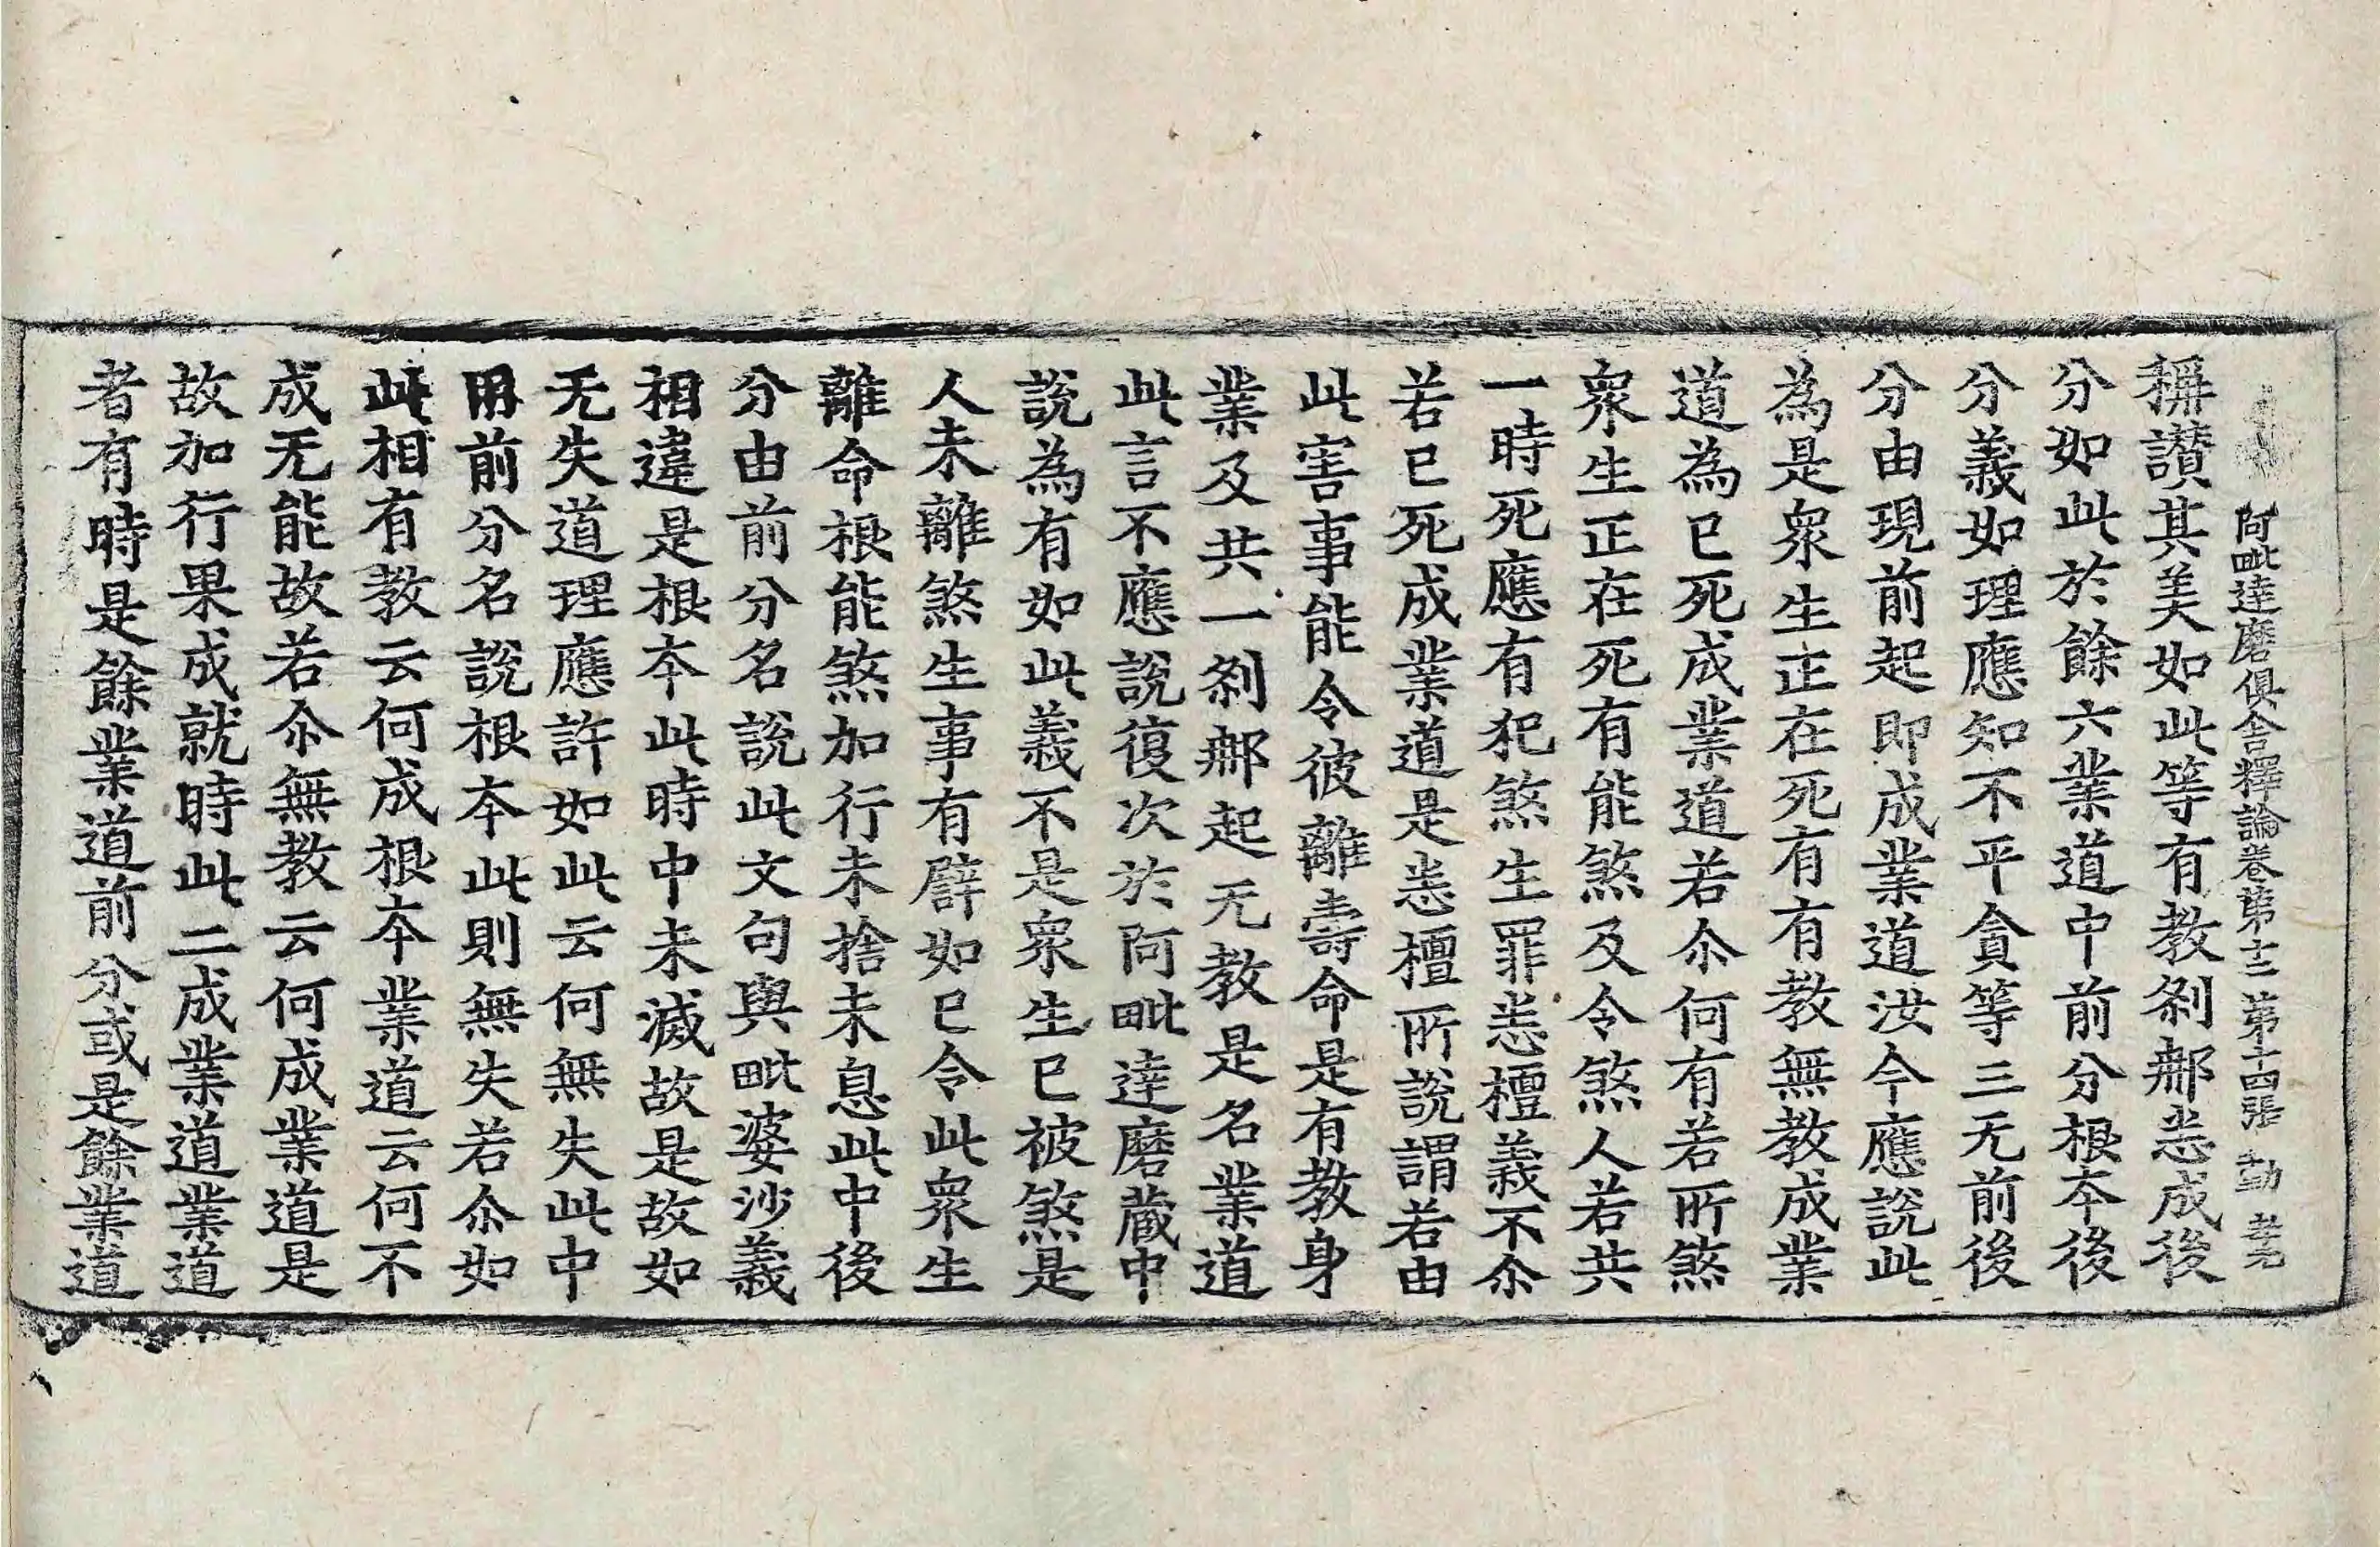 阿毗達磨俱舍釋論卷第十二 第十四張 勤 孝元
稱讃其美如此等有教刹那悉成後
分如此於餘六業道中前分根夲後
分義如理應知不平貪等三无前後
分由現前起即成業道汝今應說此
為是衆生正在死有有教無教成業
道為已死成業道若尒何有若所煞
衆生正在死有能煞及令煞人若共
一時死應有犯煞生罪悉檀義不尒
若已死成業道是悉檀所說謂若由
此害事能令彼離壽命是有教身
業及共一刹那起无教是名業道
此言不應說復次於阿毗達磨藏中
說為有如此義不是衆生已被煞是
人未離煞生事有譬如已令此衆生
離命根能煞加行未捨未息此中後
分由前分名說此文句與毗婆沙義
相違是根夲此時中未滅故是故如
无失道理應許如此云何無失此中
用前分名說根夲此則無失若尒如
此相有教云何成根夲業道云何不
成无能故若尒無教云何成業道是
故加行果成就時此二成業道業道
者有時是餘業道前分或是餘業道